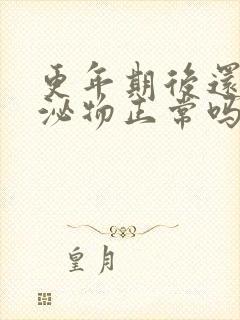 更年期後還
泌物正常吗
皇月